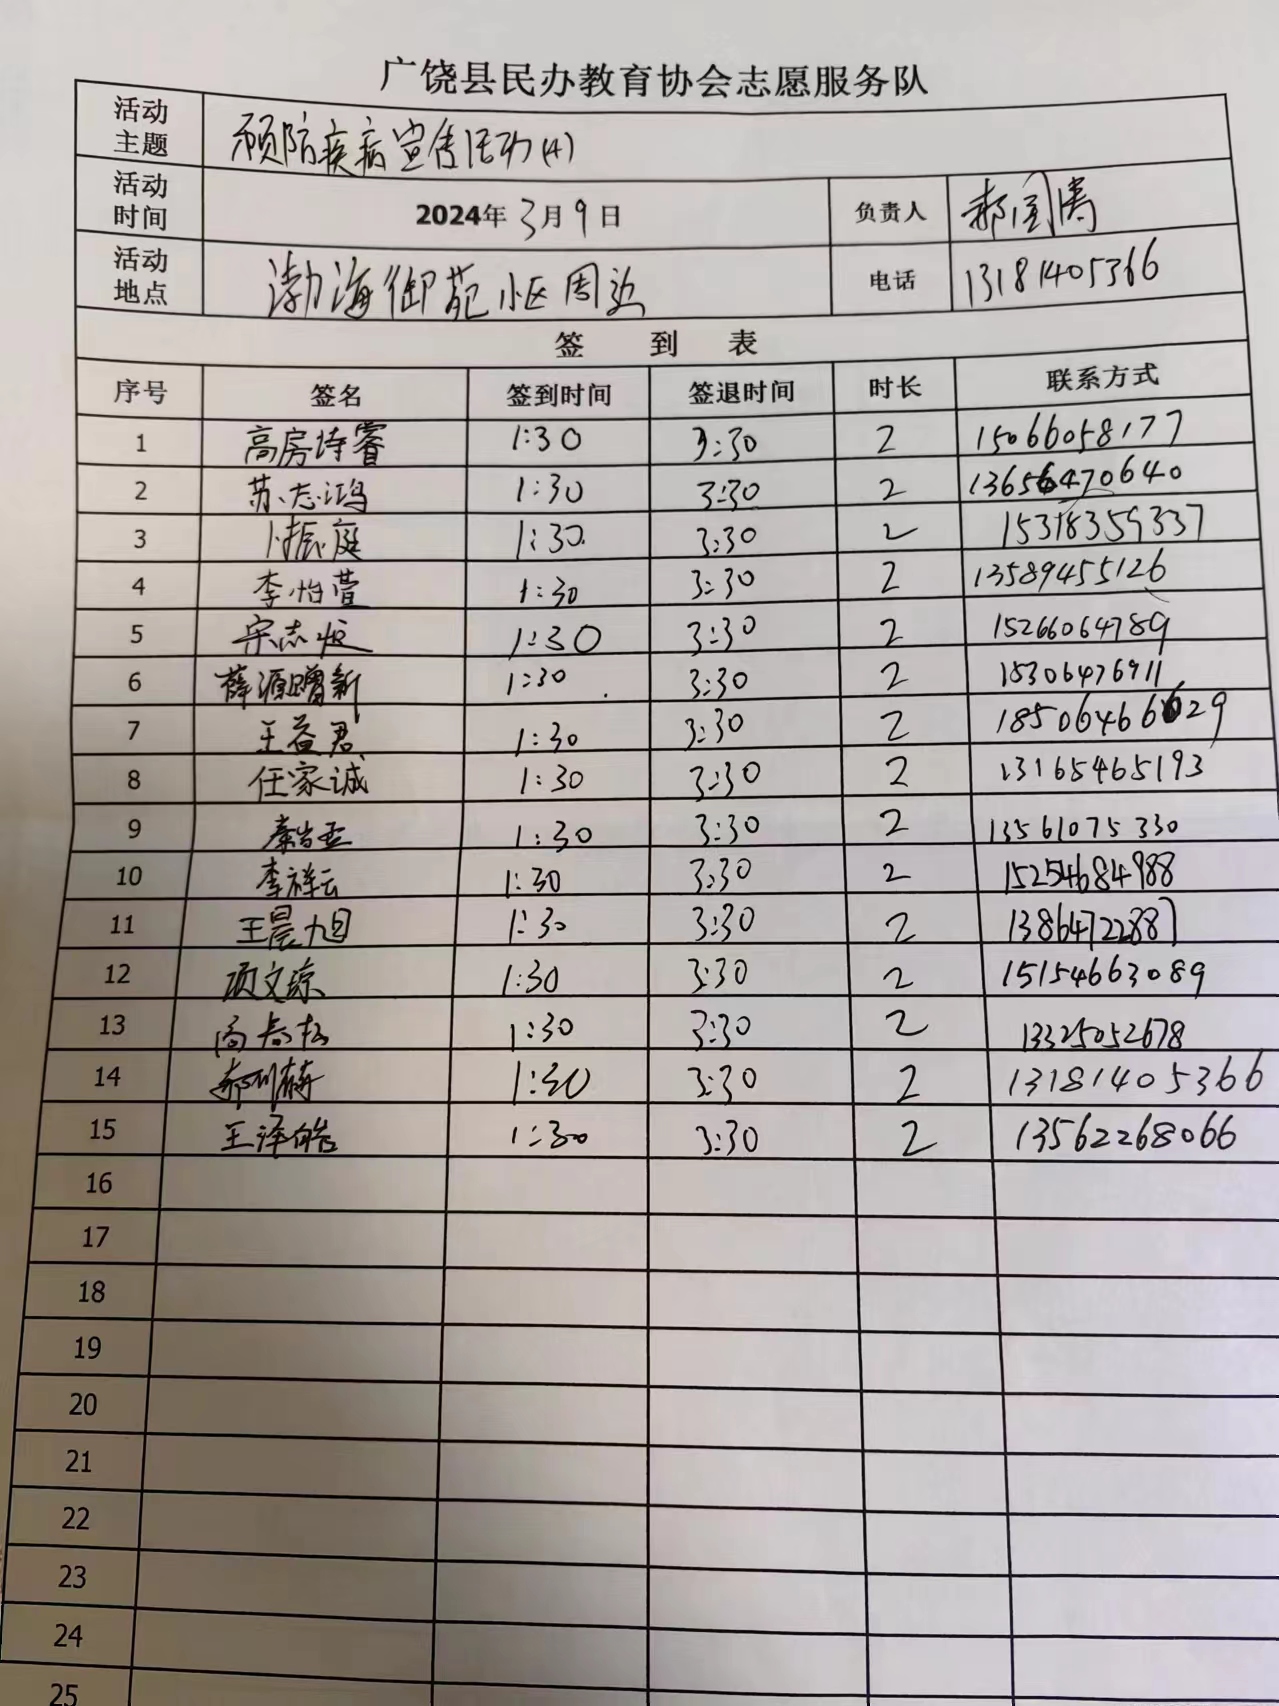 广饶县民办教育协会志愿服务队
活动主题 预防疾病宣传活动(4)
活动时间 2024年3月9日 负责人 郝国涛
活动地点 渤海御苑小区周边 电话 13181405366
签 到 表
序号 签名 签到时间 签退时间 时长 联系方式
1 高房诗睿 1:30 3:30 2 15066058177
2 苏志鸿 1:30 3:30 2 13656470640
3 卜振庭 1:30 3:30 2 15318359337
4 李怡萱 1:30 3:30 2 13589455126
5 宋志 1:30 3:30 2 15266064789
6 薛源增新 1:30 3:30 2 18306476911
7 王益君 1:30 3:30 2 18506466629
8 任家诚 1:30 3:30 2 13165465193
9 秦 1:30 3:30 2 13561075330
10 李祥云 1:30 3:30 2 15254684988
11 王晨旭 1:30 3:30 2 13864722887
12 项文琼 1:30 3:30 2 15154663089
13 高 1:30 3:30 2 13325052678
14 郝 1:30 3:30 2 13181405366
15 王泽皓 1:30 3:30 2 13562268066
16
17
18
19
20
21
22
23
24
25